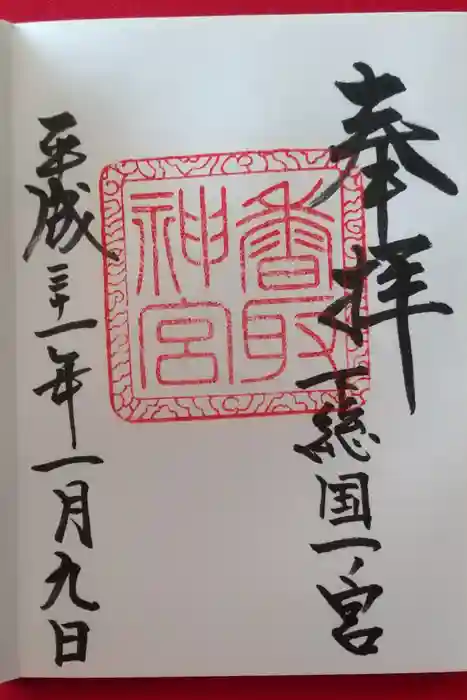 奉拝
下総国一宮
香取
神宮
平成三十一年一月九日